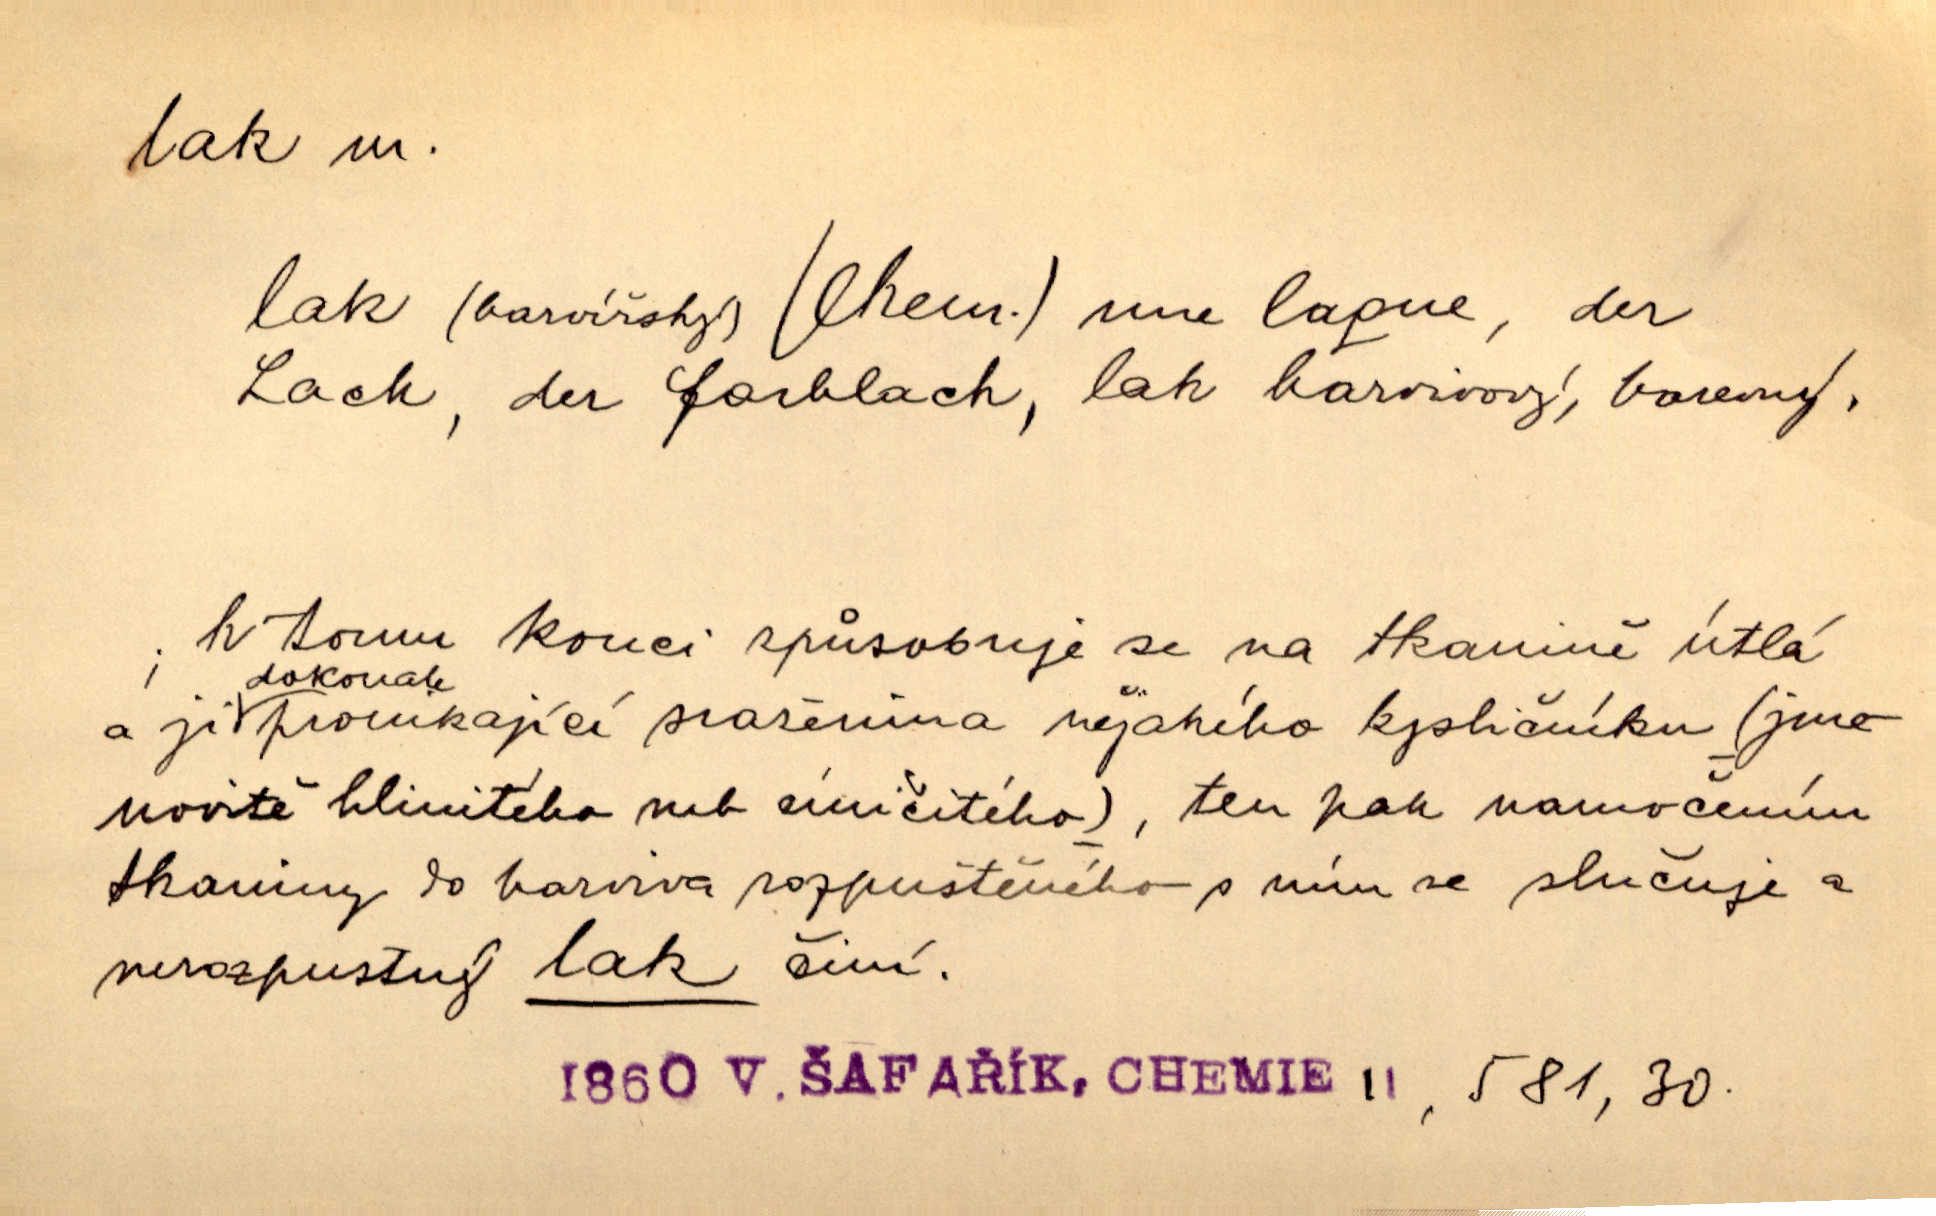 lak m.
lak (barvířský) (Chem.) une laque, der
Lack, der Farblack, lak barvivový, barevný.
; k tomu konci způsobuje se na tkanině útlá
a ji dokonale pronikající sraženina nějakého kysličníku (jme-
novitě hlinitého neb cíničitého), ten pak namočením
tkaniny do barviva rozpuštěného s ním se slučuje a
nerozpustný lak činí.
1860 V. ŠAFAŘÍK, CHEMIE II, 581, 30.